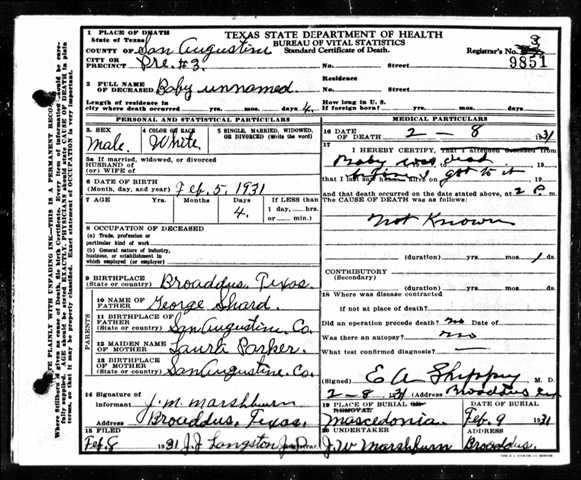 TEXAS STATE DEPARTMENT OF HEALTH
BUREAU OF VITAL STATISTICS
Standard Certificate of Death.
1 PLACE OF DEATH
State of Texas
COUNTY OF San Augustine
CITY OR PRECINCT Pre. #3.
Registrar's No. 3
9851
No. Street
2 FULL NAME OF DECEASED Baby unnamed.
Residence
No. Street
Length of residence in city where death occurred yrs. mos. days 4.
How long in U. S. yrs. mos. days
PERSONAL AND STATISTICAL PARTICULARS
3. SEX Male.
4 COLOR OR RACE White
5 SINGLE, MARRIED, WIDOWED, OR DIVORCED (Write the word)
5a If married, widowed, or divorced
HUSBAND of
(or) WIFE of
6 DATE OF BIRTH
(Month, day, and year) Feb. 5, 1931
7 AGE Years Months Days 4. If LESS than 1 day, hrs. or min.
8 OCCUPATION OF DECEASED
(a) Trade, profession or particular kind of work
(b) General nature of industry, business, or establishment in which employed (or employer)
9 BIRTHPLACE
(State or country) Broaddus, Texas.
PARENTS
10 NAME OF FATHER George Shard.
11 BIRTHPLACE OF FATHER
(State or country) San Augustine. Co.
12 MAIDEN NAME OF MOTHER Laura Parker.
13 BIRTHPLACE OF MOTHER
(State or country) San Augustine. Co.
14 Signature of Informant J. M. Marshburn
Address Broaddus, Texas.
15 FILED Feb. 8 1931 J. J. Langston
MEDICAL PARTICULARS
16 DATE OF DEATH 2 - 8 , 1931
17 I HEREBY CERTIFY, That I attended deceased from
Baby was dead , 19
before I got to it
that I last saw h alive on , 19
and that death occurred on the date stated above, at 2 P. m.
The CAUSE OF DEATH was as follows:
Not Known
(duration) yrs. mos. 1 ds.
CONTRIBUTORY
(Secondary)
(duration) yrs. mos. ds.
18 Where was disease contracted
if not at place of death?
Did an operation precede death? no Date of
Was there an autopsy? no
What test confirmed diagnosis?
(Signed) E A Shippy M. D.
2-8, 1931 (Address) Broaddus
19 PLACE OF BURIAL OR REMOVAL Mascedonia.
DATE OF BURIAL Feb. 9 1931
20 UNDERTAKER J. W. Marshburn
Address Broaddus.